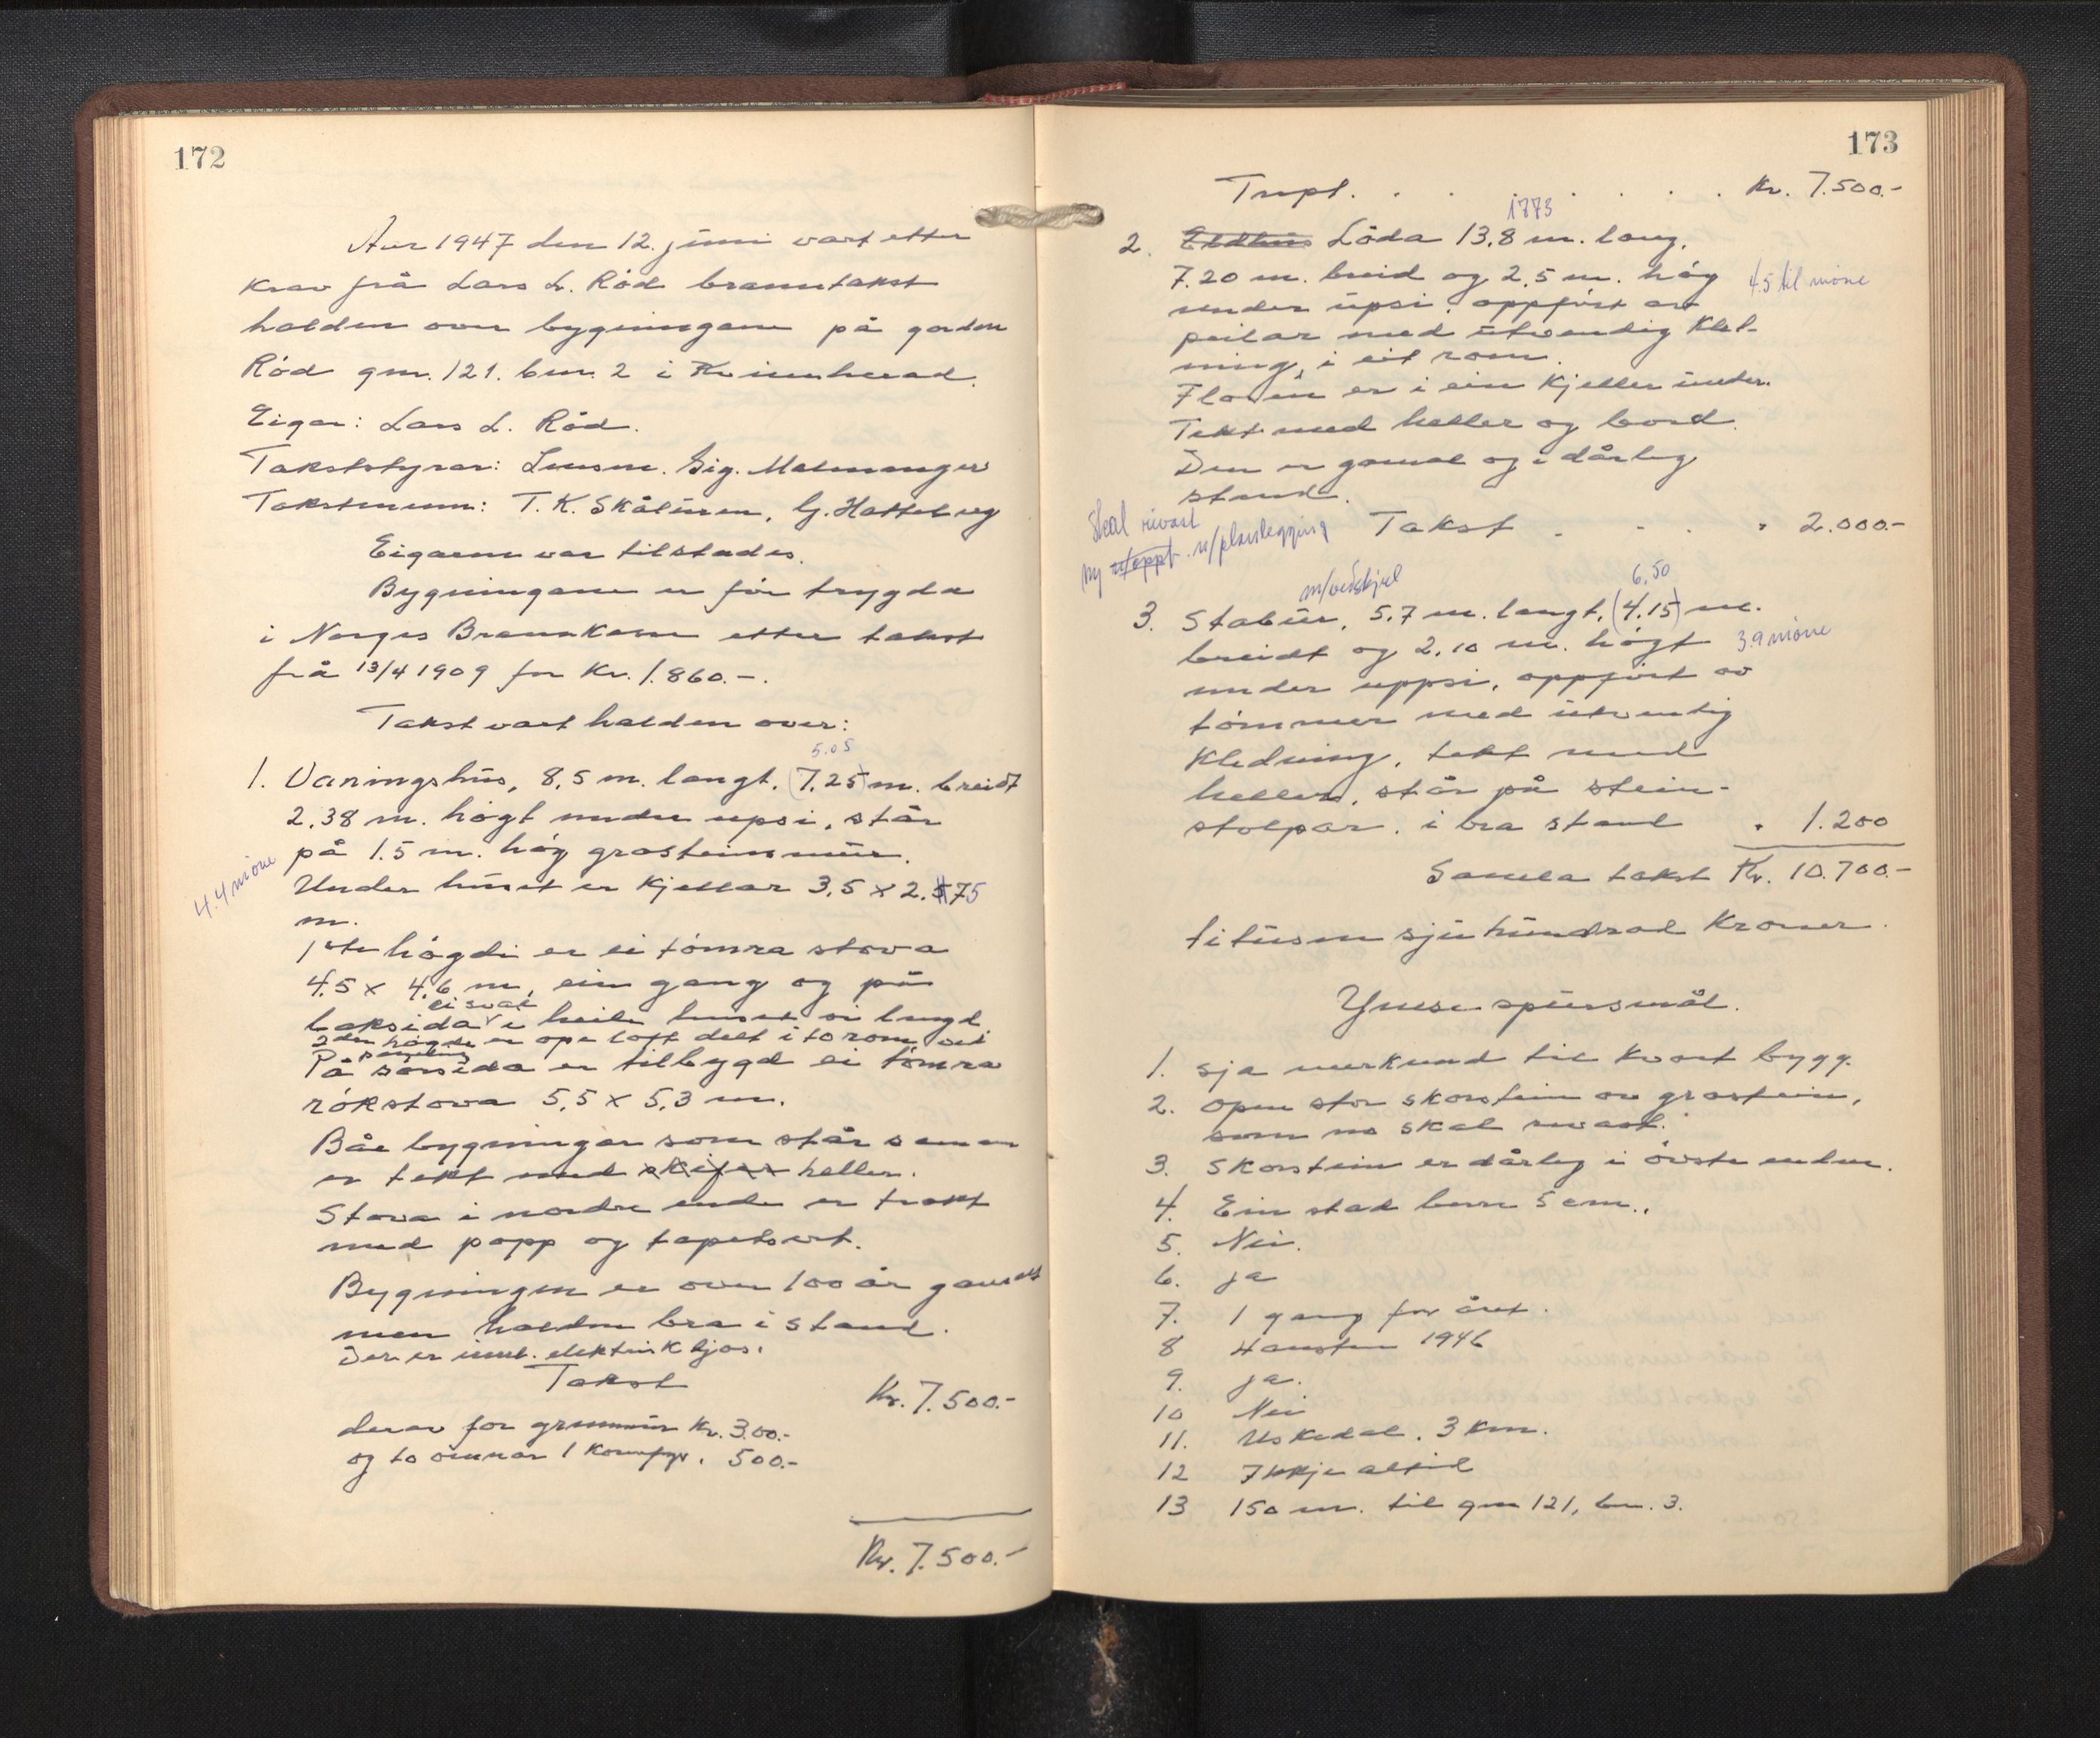 172
Aar 1947 den 12. juni vart etter
krav frå Lars L. Röd branntakst
halden over bygningane på garden
Röd gnr. 121. bnr. 2 i Kvinnherad.
Eigar: Lars L. Röd.
Takststyrar: Lensm. Sig. Malmanger
Takstmenn: T. K. Skålnes, G. Hatteberg
Eigaren var tilstades.
Bygningane er för trygda
i Norges Brannkasse etter takst
frå 13/4 1909 for Kr. 1.860.-.
Takst vart halden over:
5.05
1. Vaningshus, 8,5 m. langt, (7,25) m. breidt
2,38 m. högt under upsi, står
på 1.5 m. hög grasteinsmur.
4.4 möne
Under huset er kjellar 3,5 x 2.75
m.
1ste högdi er ei tömra stova
4,5 x 4,6 m, ein gang og på
ei sval
baksida i heile huset si lengd.
2den högde er ope loft delt i to rom ved
paneling
På sörsida er tilbygd ei tömra
rökstova 5,5 x 5,3 m.
Båe bygningar som står saman
er tekt med skifer heller.
Stova i nordre ende er trekt
med papp og tapetsert.
Bygningen er over 100 år gamalt
men halden bra i stand.
Der er innl. elektrisk ljos.
Takst Kr. 7.500.-
derav for grunnmur Kr. 300.-
og to omnar 1 komfyr. 500.-
Kr. 7.500.-
173
Trspt. . . . . . . . Kr. 7.500.-
1873
2. Eldhus Löda 13,8 m. lang,
7.20 m. breid og 2,5 m. hög
4.5 til möne
under upsi, oppfört av
peilar med utvendig kled-
ning, i eit rom.
Floren er i ein kjeller under.
Tekt med heller og bord.
Den er gamal og i dårleg
stand.
Skal rivast
Takst . - . . " 2.000.-
ny m/oppf. m/planlegging
m/vedskjul
6,50
3. Stabur, 5,7 m. langt, (4,15) m.
breidt og 2,10 m. högt
3.9 möne
under uppsi, oppfört av
tömmer med utvendig
kledning, tekt med
heller, står på stein-
stolpar. i bra stand " 1.200
Samla takst Kr. 10.700.-
titusen sjuhundrad Kroner.
Ymse spursmål.
1. Sjå merknad til kvart bygg.
2. Open stor skorstein av grastein,
som no skal rivast.
3. Skorstein er dårleg i övste enden.
4. Ein stad berre 5 cm.,
5. Nei.
6. ja
7. 1 gang for året.
8 Hausten 1946
9. ja.
10 Nei
11. Uskedal. 3 km.
12 Ikkje altid
13 150 m. til gnr 121, bn. 3.